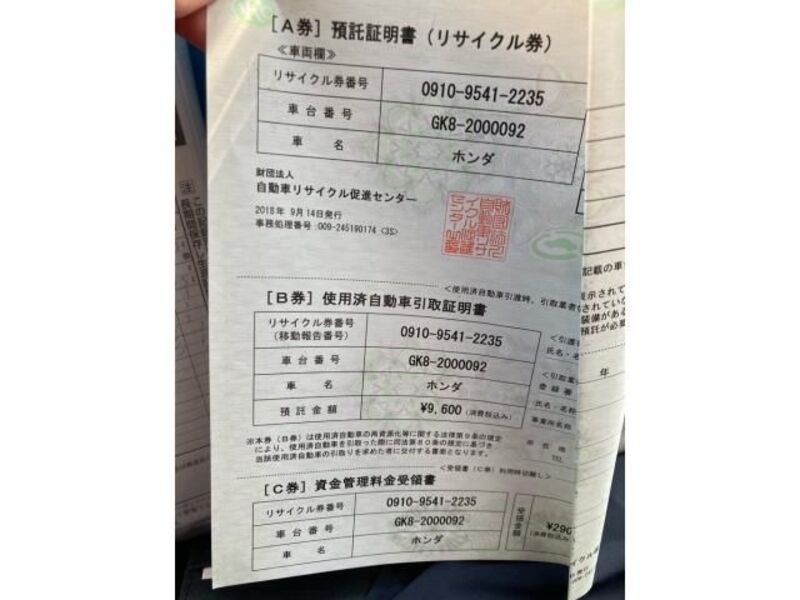 [A券] 預託証明書 (リサイクル券)
≪車両欄≫
リサイクル券番号 0910-9541-2235
車台番号 GK8-2000092
車名 ホンダ
財団法人
自動車リサイクル促進センター
2018年 9月14日発行
事務処理番号:009-245190174 <3S>
<使用済自動車引渡時、引取業者
[B券] 使用済自動車引取証明書
リサイクル券番号 0910-9541-2235
(移動報告番号)
車台番号 GK8-2000092
車名 ホンダ
預託金額 ¥9,600 (消費税込み)
※本券(B券)は使用済自動車の再資源化等に関する法律第9条の規定
により、使用済自動車を引取った際に同法第80条の規定に基づき
当該使用済自動車の引取りを求めた者に交付する書面となります。
<引渡
氏名・名
<引取業
登録番
氏名・名称
事業所名称
所在地
TEL
<受領書(C券)利用時切離し>
[C券] 資金管理料金受領書
リサイクル券番号 0910-9541-2235
車台番号 GK8-2000092
車名 ホンダ
受領金額
¥290
(消費税込み
記載の車
表示されて
されていな
装備がある
預託が必要
年
イクル券
注
この記
長期間保存し